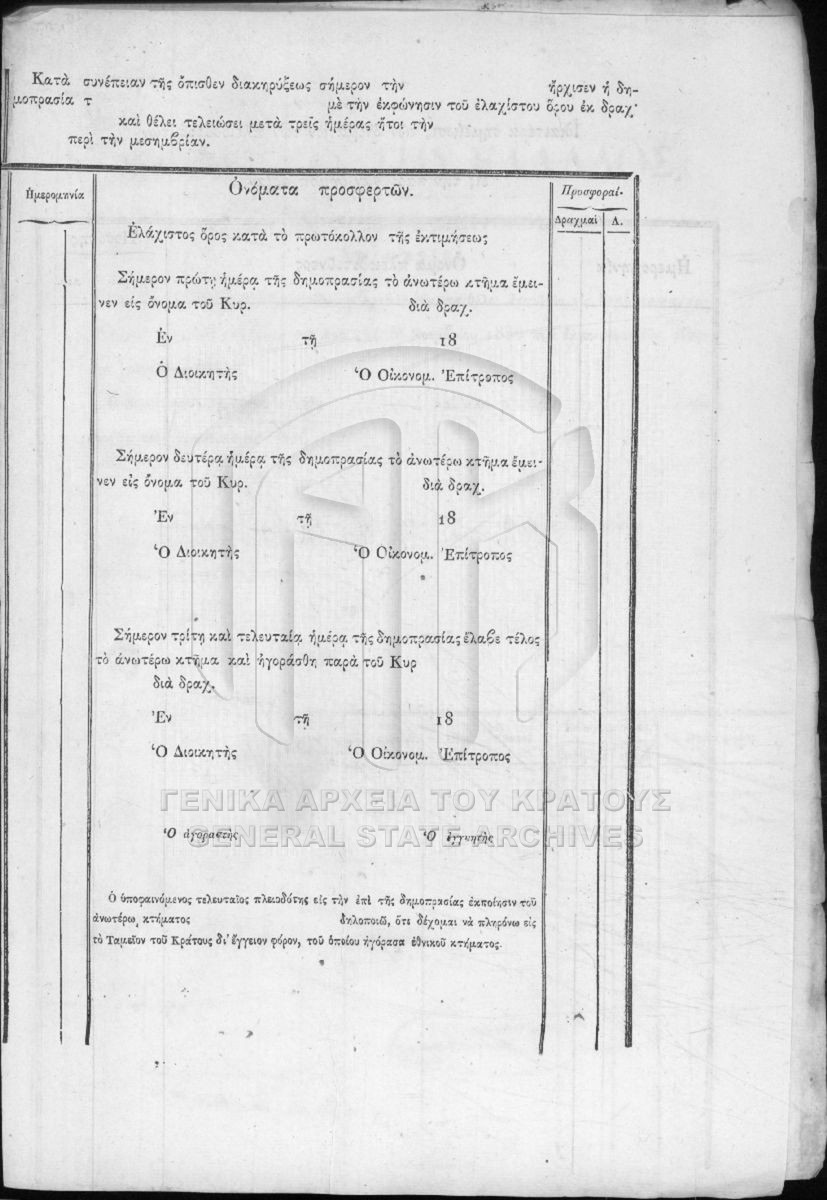 Κατὰ συνέπειαν τῆς ὄπισθεν διακηρύξεως σήμερον τὴν ἤρχισεν ἡ δη-
μοπρασία τ μὲ τὴν ἐκφώνησιν τοῦ ἐλαχίστου ὅρου ἐκ δραχ·
καὶ θέλει τελειώσει μετὰ τρεῖς ἡμέρας ἤτοι τὴν
περὶ τὴν μεσημβρίαν.
Ἡμερομηνία
Ὀνόματα προσφερτῶν.
Προσφοραί.
Δραχμαὶ Λ.
Ἐλάχιστος ὅρος κατὰ τὸ πρωτόκολλον τῆς ἐκτιμήσεως
Σήμερον πρώτη ἡμέρα τῆς δημοπρασίας τὸ ἀνωτέρω κτῆμα ἔμει-
νεν εἰς ὄνομα τοῦ Κυρ. διὰ δραχ.
Ἐν τῇ 18
Ὁ Διοικητὴς Ὁ Οἰκονομ. Ἐπίτροπος
Σήμερον δευτέρᾳ ἡμέρᾳ τῆς δημοπρασίας τὸ ἀνωτέρω κτῆμα ἔμει-
νεν εἰς ὄνομα τοῦ Κυρ. διὰ δραχ.
Ἐν τῇ 18
Ὁ Διοικητὴς Ὁ Οἰκονομ. Ἐπίτροπος
Σήμερον τρίτῃ καὶ τελευταίᾳ ἡμέρᾳ τῆς δημοπρασίας ἔλαβε τέλος
τὸ ἀνωτέρω κτῆμα καὶ ἠγοράσθη παρὰ τοῦ Κυρ
διὰ δραχ.
Ἐν τῇ 18
Ὁ Διοικητὴς Ὁ Οἰκονομ. Ἐπίτροπος
ΓΕΝΙΚΑ ΑΡΧΕΙΑ ΤΟΥ ΚΡΑΤΟΥΣ
Ὁ ἀγοραστὴς Ὁ ἐγγυητὴς
GENERAL STATE ARCHIVES
Ὁ ὑποφαινόμενος τελευταῖος πλειοδότης εἰς τὴν ἐπὶ τῆς δημοπρασίας ἐκποίησιν τοῦ
ἀνωτέρω κτήματος δηλοποιῶ, ὅτι δέχομαι νὰ πληρόνω εἰς
τὸ Ταμεῖον τοῦ Κράτους δι' ἔγγειον φόρον, τοῦ ὁποίου ἠγόρασα ἐθνικοῦ κτήματος.